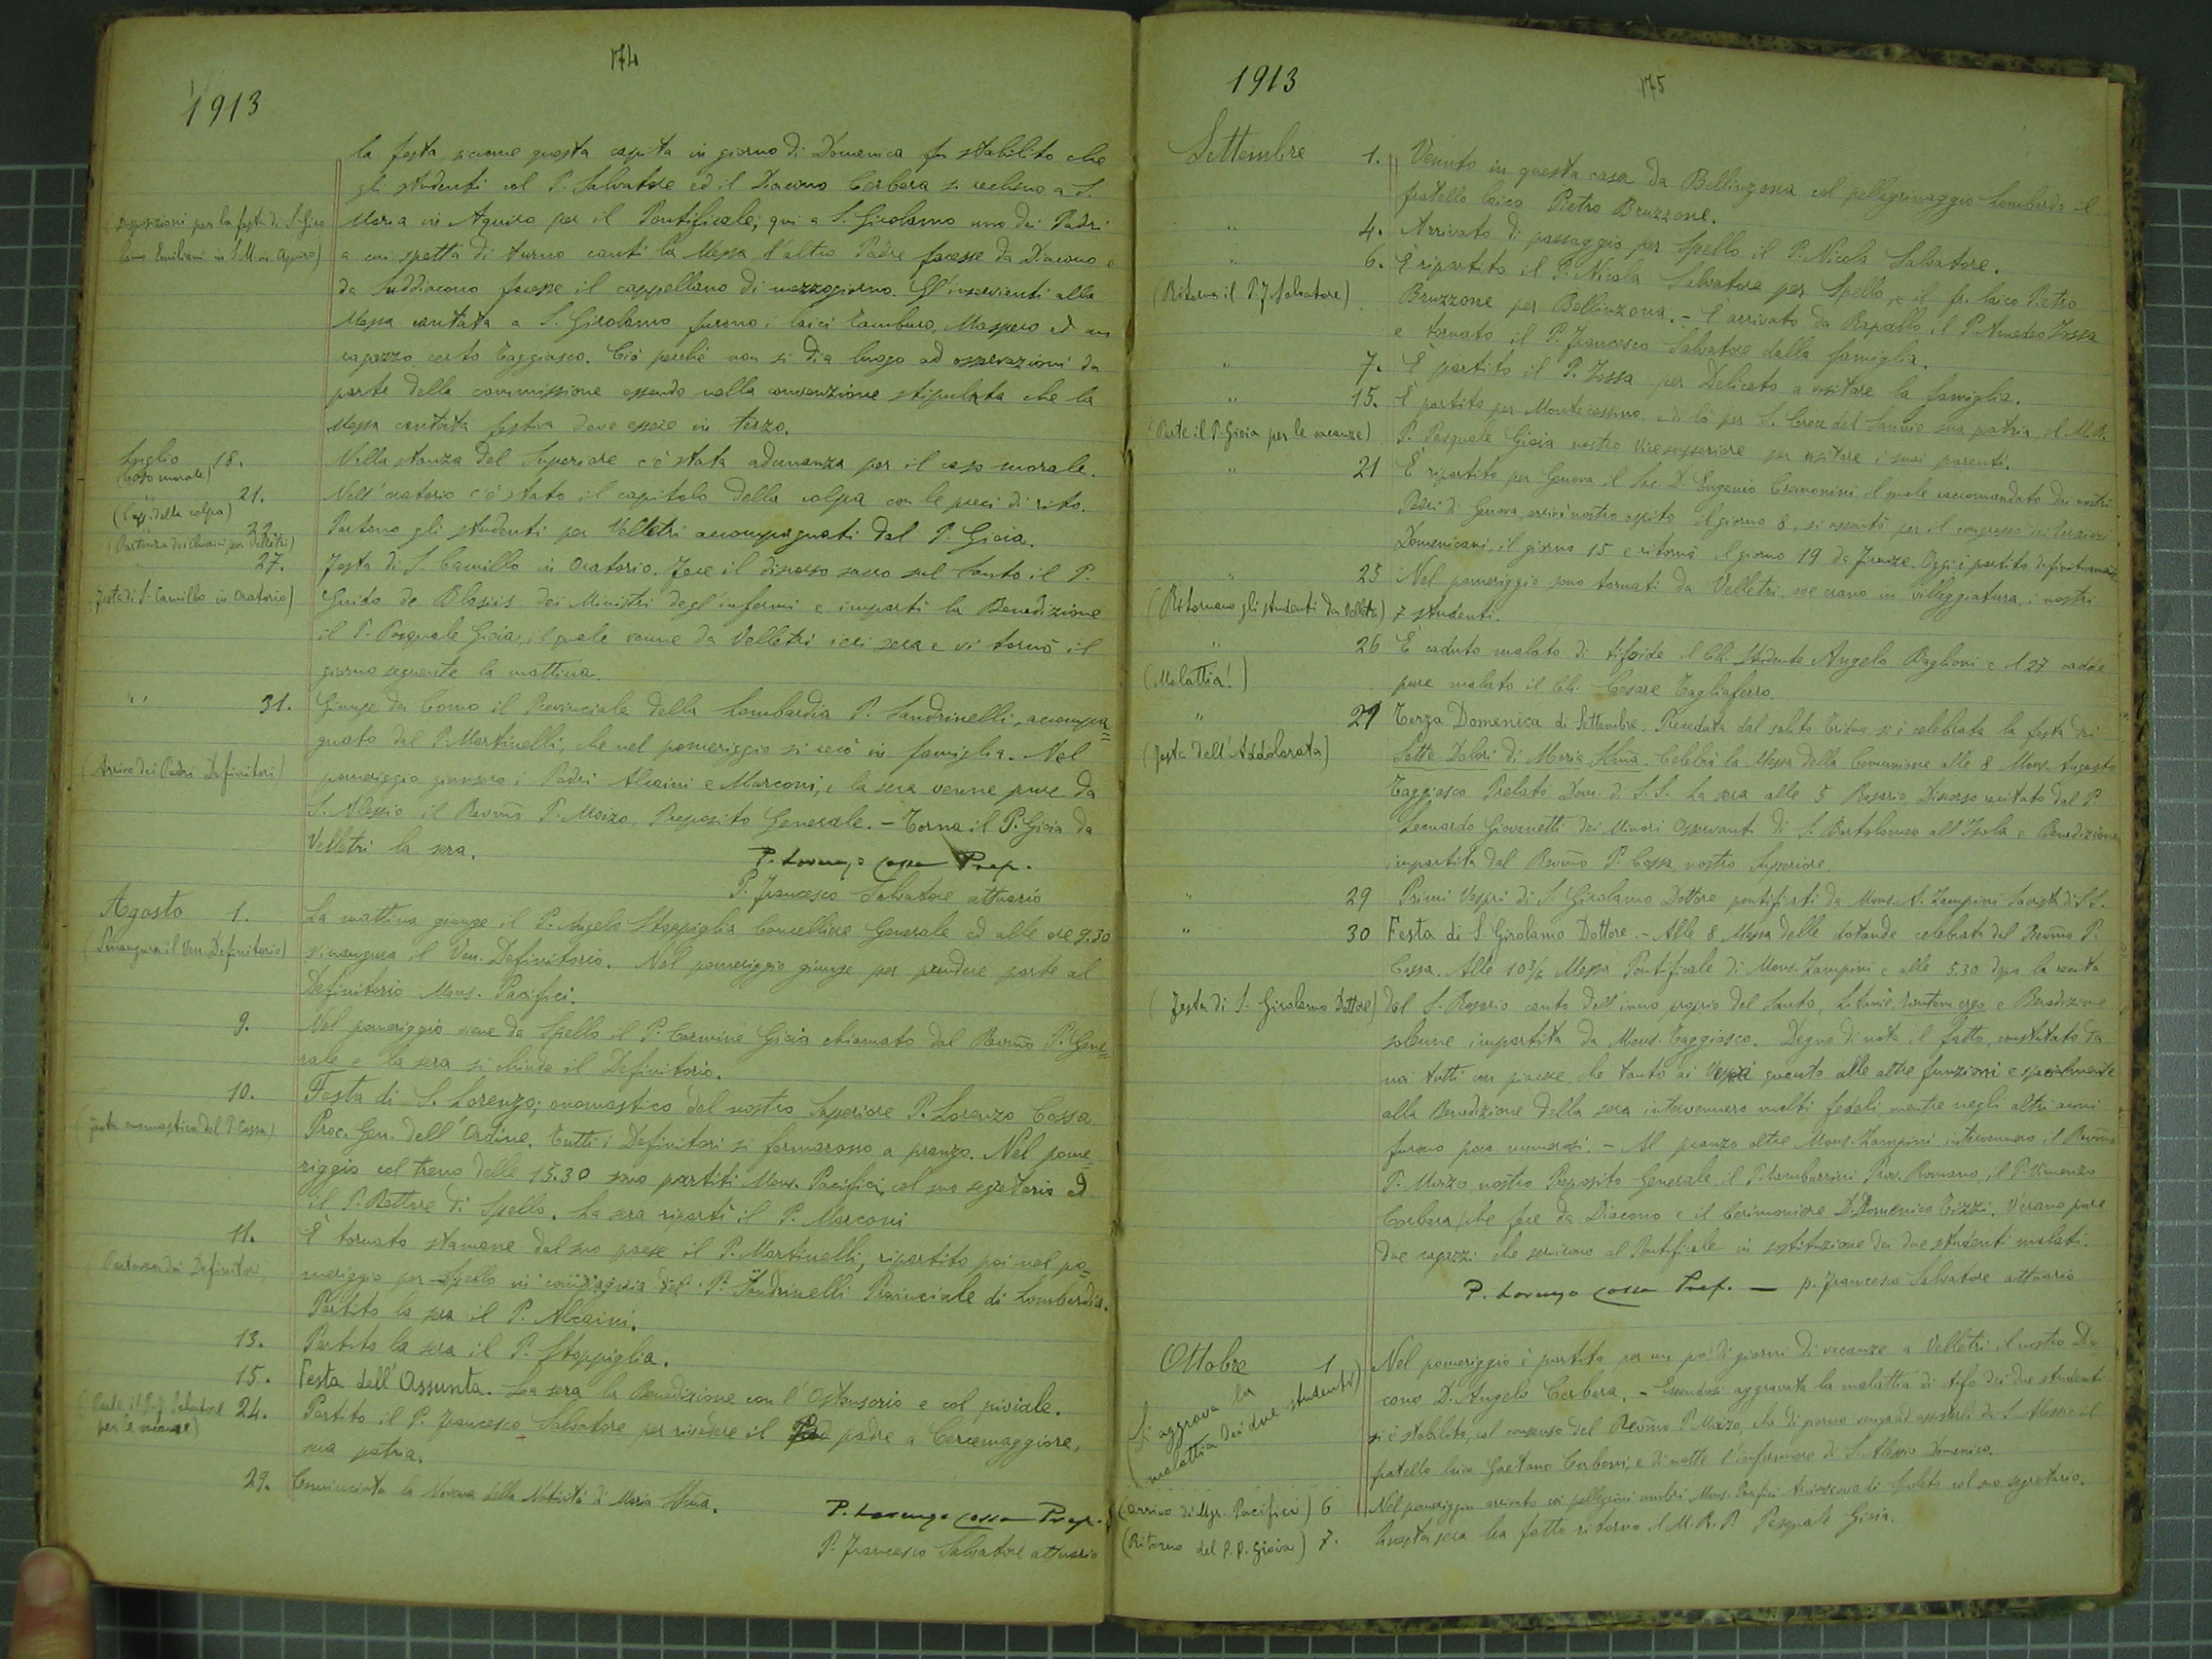 174
1913
la festa siccome questa capita in giorno di Domenica fu stabilito che
gli studenti col P. Salvatore ed il Diacono Cerbara si rechino a S.
(Disposizioni per la festa di S. Giro
Maria in Aquiro per il Pontificale; qui a S. Girolamo uno dei Padri
lamo Emiliani in S. M. in Aquiro)
a cui spetta di turno canti la Messa l'altro Padre facesse da Diacono e
da Suddiacono facesse il cappellano di mezzogiorno. Gl'inservienti alla
Messa cantata a S. Girolamo furono i laici Tamburo, Maspero ed un
ragazzo certo Taggiasco. Ciò perchè non si dia luogo ad osservazioni da
parte della commissione essendo nella convenzione stipulata che la
Messa cantata festiva deve essere in terzo.
Luglio 18.
Nella stanza del Superiore c'è stata adunanza per il caso morale.
(Caso morale)
" 21.
Nell'oratorio c'è stato il capitolo della colpa con le preci di rito.
(Cap. della colpa)
22.
Partono gli studenti per Velletri accompagnati dal P. Gioia.
(Partenza dei Chierici per Velletri)
" 27.
Festa di S. Camillo in Oratorio. Fece il discorso sacro sul Santo il P.
(Festa di S. Camillo in Oratorio)
Guido de Blasiis dei Ministri degl'infermi e impartì la Benedizione
il P. Pasquale Gioia, il quale venne da Velletri ieri sera e vi tornò il
giorno seguente la mattina.
" 31.
Giunge da Como il Provinciale della Lombardia P. Sandrinelli, accompa=
gnato dal P. Martinelli, che nel pomeriggio si recò in famiglia. Nel
(Arrivo dei Padri Definitori)
pomeriggio giunsero i Padri Alcaini e Marconi, e la sera venne pure da
S. Alessio il Revmo P. Moizo, Preposito Generale. - Torna il P. Gioia da
Velletri la sera.
P. Lorenzo Cossa Prep.
P. Francesco Salvatore attuario
Agosto 1.
La mattina giunge il P. Angelo Stoppiglia Cancelliere Generale ed alle ore 9.30
(S'inaugura il Ven. Definitorio)
s'inaugura il Ven. Definitorio. Nel pomeriggio giunge per prendere parte al
Definitorio Mons. Pacifici.
9.
Nel pomeriggio viene da Spello il P. Carmine Gioia chiamato dal Revmo P. Gene=
rale e la sera si chiude il Definitorio.
10.
Festa di S. Lorenzo; onomastico del nostro Superiore P. Lorenzo Cossa
(Festa onomastica del P. Cossa)
Proc. Gen. dell'Ordine. Tutti i Definitori si fermarono a pranzo. Nel pome=
riggio col treno delle 15.30 sono partiti Mons. Pacifici, col suo segretario ed
il P. Rettore di Spello. La sera ripartì il P. Marconi
11.
È tornato stamane dal suo paese il P. Martinelli, ripartito poi nel po=
(Partenza dei Definitori)
meriggio per Spello in compagnia del P. Sandrinelli Provinciale di Lombardia.
Partito la sera il P. Alcaini.
13.
Partito la sera il P. Stoppiglia.
15.
Festa dell'Assunta. La sera la Benedizione con l'Ostensorio e col piviale.
(Parte il P. F. Salvatore
per le vacanze)
24.
Partito il P. Francesco Salvatore per rivedere il padre a Cercemaggiore,
sua patria.
29.
Cominciata la Novena della Natività di Maria SSma.
P. Lorenzo Cossa Prep.
P. Francesco Salvatore attuario
1913
175
Settembre 1.
Venuto in questa casa da Bellinzona col pellegrinaggio Lombardo il
fratello laico Pietro Bruzzone.
" 4.
Arrivato di passaggio per Spello il P. Nicola Salvatore.
" 6.
È ripartito il P. Nicola Salvatore per Spello, e il fr. laico Pietro
(Ritorna il P. F. Salvatore)
Bruzzone per Bellinzona. - È arrivato da Rapallo il P. Amedeo Jossa
e tornato il P. Francesco Salvatore dalla famiglia.
" 7.
È partito il P. Jossa per Deliceto a visitare la famiglia.
" 15.
È partito per Montecassino, e di là per S. Croce del Sannio sua patria, il M. R.
(Parte il P. Gioia per le vacanze)
P. Pasquale Gioia nostro Vicesuperiore per visitare i suoi parenti.
" 21
È ripartito per Genova il Sac. D. Eugenio Cremonini il quale raccomandato dai nostri
Padri di Genova, arrivò nostro ospite il giorno 8, si assentò per il congresso dei Terziarii
Domenicani, il giorno 15 e ritornò il giorno 19 da Firenze. Oggi è partito definitivamente.
" 25
Nel pomeriggio sono tornati da Velletri, ove erano in villeggiatura, i nostri
(Ritornano gli studenti da Velletri)
7 studenti.
" 26
È caduto malato di tifoide il Ch. Studente Angelo Baglioni e il 27 cadde
(Malattia!)
pure malato il Ch. Cesare Tagliaferro.
" 21
Terza Domenica di Settembre. Preceduta dal solito Triduo si è celebrata la festa dei
(Festa dell'Addolorata)
Sette Dolori di Maria SSma. Celebrò la Messa della Comunione alle 8 Mons. Augusto
Taggiasco Prelato Dom. di S. S. La sera alle 5 Rosario, Discorso recitato dal P.
Leonardo Giovanetti dei Minori Osservanti di S. Bartolomeo all'Isola e Benedizione
impartita dal Revmo P. Cossa nostro Superiore.
" 29
Primi Vespri di S. Girolamo Dottore pontificati da Mons. A. Zampini Sacrista di S. S.
" 30
Festa di S. Girolamo Dottore. - Alle 8 Messa delle dotande celebrata dal Revmo P.
Cossa. Alle 10 1/2 Messa Pontificale di Mons. Zampini e alle 5.30 dopo la recita
(Festa di S. Girolamo Dottore)
del S. Rosario canto dell'inno proprio del Santo, Litanie Tantum ergo e Benedizione
solenne impartita da Mons. Taggiasco. Degno di nota il fatto, constatato da
noi tutti con piacere, che tanto ai Vespri quanto alle altre funzioni e specialmente
alla Benedizione della sera intervennero molti fedeli, mentre negli altri anni
furono poco numerosi. - Al pranzo oltre Mons. Zampini intervennero il Revmo
P. Moizo nostro Preposito Generale, il P. Lambarrini Prov. Romano, il P. Vincenzo
Cerbara che fece da Diacono e il Cerimoniere D. Domenico Tizzi. V'erano pure
due ragazzi che servirono al Pontificale in sostituzione dei due studenti malati.
P. Lorenzo Cossa Prep. - P. Francesco Salvatore attuario
Ottobre 1
Nel pomeriggio è partito per un po' di giorni di vacanze a Velletri il nostro Dia
(Si aggrava la
malattia dei due studenti)
cono D. Angelo Cerbara. - Essendosi aggravata la malattia di tifo dei due studenti
si è stabilito, col consenso del Revmo P. Moizo, che di giorno venga ad assisterli da S. Alessio il
fratello laico Gaetano Carboni, e di notte l'infermiere di S. Alessio Domenico.
(Arrivo di Mgr. Pacifici) 6
Nel pomeriggio arrivato coi pellegrini umbri Mons. Pacifici Arcivescovo di Spoleto col suo segretario.
(Ritorno del P. P. Gioia) 7.
Questa sera ha fatto ritorno il M. R. P. Pasquale Gioia.